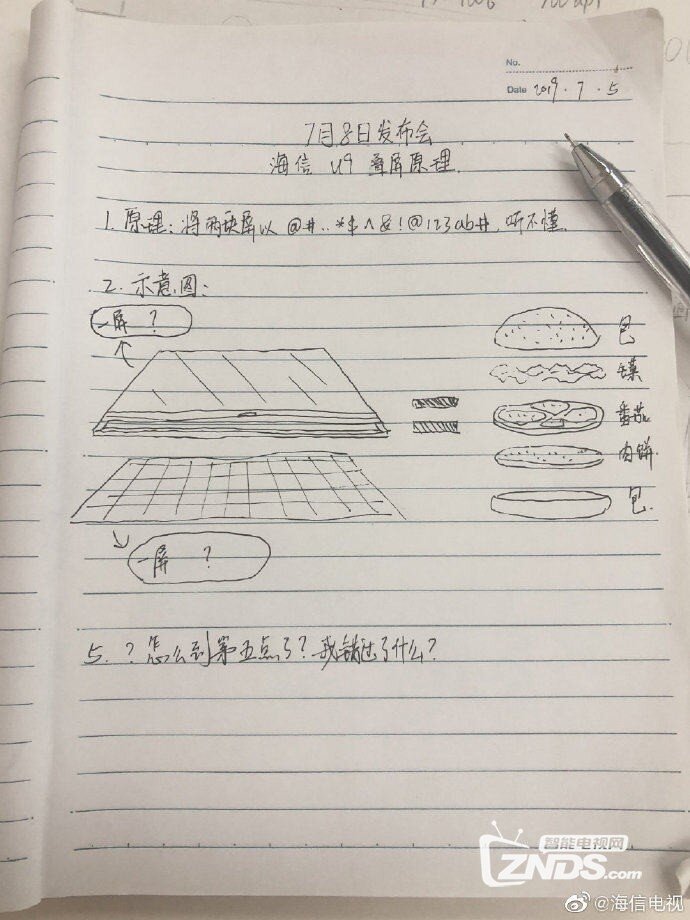 No.
Date 2019.7.5
7月8日发布会
海信 U9 叠屏原理.
1. 原理：将两块屏以 @#..*$^&!@123ab#, 听不懂.
2. 示意图：
一屏 ?
包
菜
番茄
肉饼
包.
一屏 ?
5. ? 怎么到第五点了? 我错过了什么?
智能电视网
ZNDS.com
@海信电视